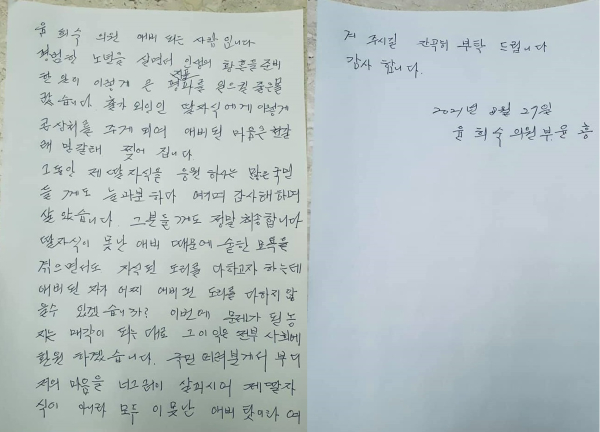 윤 희숙 의원 애비 되는 사람 입니다
평범한 노년을 살면서 인생의 황혼을 준비
한 삶이 이렇게 큰 평지풍파를 일으킬 줄은 몰
랐습니다. 출가 외인인 딸자식에게 이렇게
큰 상처를 주게 되어 애비된 마음은 천 갈
래 만 갈래 찢어 집니다
그동안 제 딸자식을 응원 하시는 많은 국민
들께도 늘 과분하다 여기며 감사해 하며
살았습니다. 그분들께도 정말 죄송합니다
딸자식이 못난 애비 때문에 숱한 모욕을
겪으면서도 자식된 도리를 다하고자 하는데
애비된 자가 어찌 애비된 도리를 다하지 않
을수 있겠습니까? 이번에 문제가 된 농
지는 매각이 되는대로 그 이익은 전부 사회에
환원 하겠습니다. 국민 여러분께서 부디
저의 마음을 너그러이 살피시어 제 딸자
식이 아니라 모두 이 못난 애비 탓이라 여
겨 주시길 간곡히 부탁 드립니다
감사 합니다.
2021년 8월 27일
윤 희숙 의원 부. 윤 흥